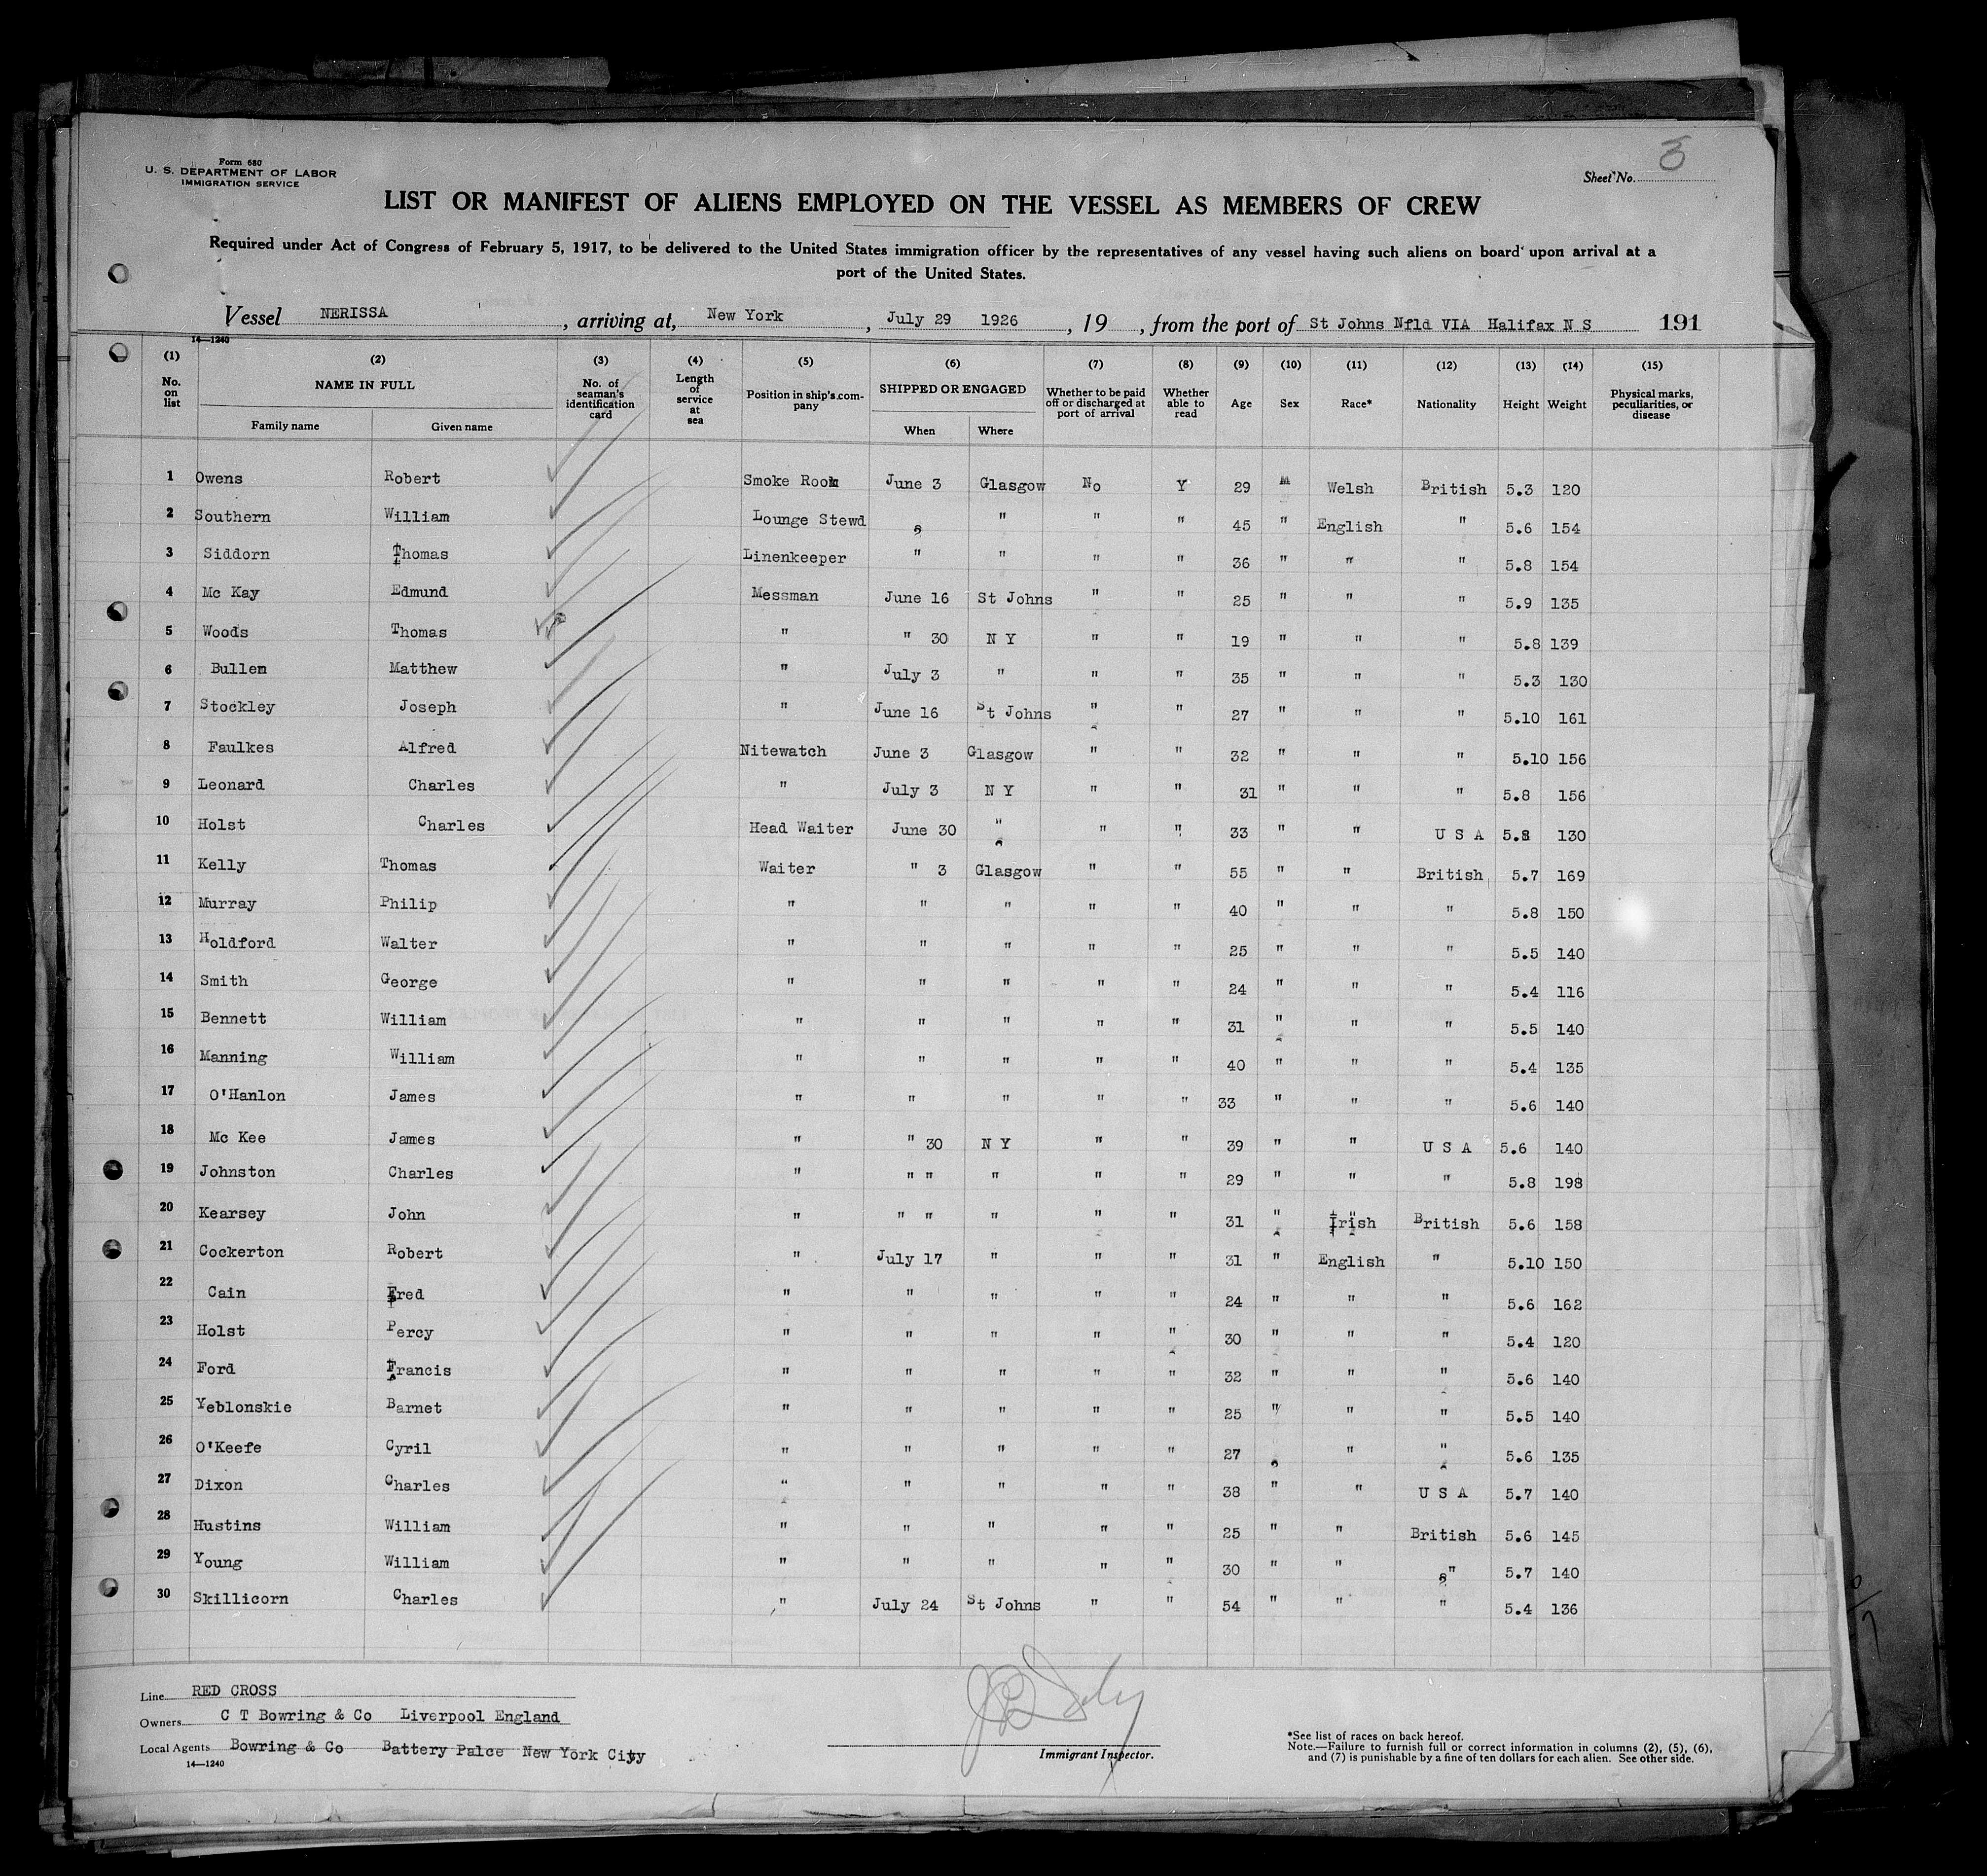 Form 680
U. S. DEPARTMENT OF LABOR
IMMIGRATION SERVICE
Sheet No. 3
LIST OR MANIFEST OF ALIENS EMPLOYED ON THE VESSEL AS MEMBERS OF CREW
Required under Act of Congress of February 5, 1917, to be delivered to the United States immigration officer by the representatives of any vessel having such aliens on board upon arrival at a
port of the United States.
Vessel NERISSA, arriving at, New York, July 29 1926, 19 , from the port of St Johns Nfld VIA Halifax N S 191
14—1240
(1) No. on list (2) NAME IN FULL Family name Given name (3) No. of seaman's identification card (4) Length of service at sea (5) Position in ship's company (6) SHIPPED OR ENGAGED When Where (7) Whether to be paid off or discharged at port of arrival (8) Whether able to read (9) Age (10) Sex (11) Race* (12) Nationality (13) Height (14) Weight (15) Physical marks, peculiarities, or disease
1 Owens Robert Smoke Room June 3 Glasgow No Y 29 M Welsh British 5.3 120
2 Southern William Lounge Stewd " " " 45 " English " 5.6 154
3 Siddorn Thomas Linenkeeper " " " " 36 " " " 5.8 154
4 Mc Kay Edmund Messman June 16 St Johns " " 25 " " " 5.9 135
5 Woods Thomas " " 30 N Y " " 19 " " " 5.8 139
6 Bullen Matthew " July 3 " " " 35 " " " 5.3 130
7 Stockley Joseph " June 16 St Johns " " 27 " " " 5.10 161
8 Faulkes Alfred Nitewatch June 3 Glasgow " " 32 " " " 5.10 156
9 Leonard Charles " July 3 N Y " " 31 " " " 5.8 156
10 Holst Charles Head Waiter June 30 " " " 33 " " U S A 5.8 130
11 Kelly Thomas Waiter " 3 Glasgow " " 55 " " British 5.7 169
12 Murray Philip " " " " " 40 " " " 5.8 150
13 Holdford Walter " " " " " 25 " " " 5.5 140
14 Smith George " " " " " 24 " " " 5.4 116
15 Bennett William " " " " " 31 " " " 5.5 140
16 Manning William " " " " " 40 " " " 5.4 135
17 O'Hanlon James " " " " " 33 " " " 5.6 140
18 Mc Kee James " " 30 N Y " " 39 " " U S A 5.6 140
19 Johnston Charles " " " " " " 29 " " " 5.8 198
20 Kearsey John " " " " " " 31 " Irish British 5.6 158
21 Cockerton Robert " July 17 " " " 31 " English " 5.10 150
22 Cain Fred " " " " " 24 " " " 5.6 162
23 Holst Percy " " " " " 30 " " " 5.4 120
24 Ford Francis " " " " " 32 " " " 5.6 140
25 Yeblonskie Barnet " " " " " 25 " " " 5.5 140
26 O'Keefe Cyril " " " " " 27 " " 5.6 135
27 Dixon Charles " " " " " 38 " " U S A 5.7 140
28 Hustins William " " " " " 25 " " British 5.6 145
29 Young William " " " " " 30 " " " 5.7 140
30 Skillicorn Charles " July 24 St Johns " " 54 " " " 5.4 136
Line RED CROSS
Owners C T Bowring & Co Liverpool England
Local Agents Bowring & Co Battery Palce New York City
14—1240
Immigrant Inspector.
*See list of races on back hereof.
Note.—Failure to furnish full or correct information in columns (2), (5), (6),
and (7) is punishable by a fine of ten dollars for each alien. See other side.